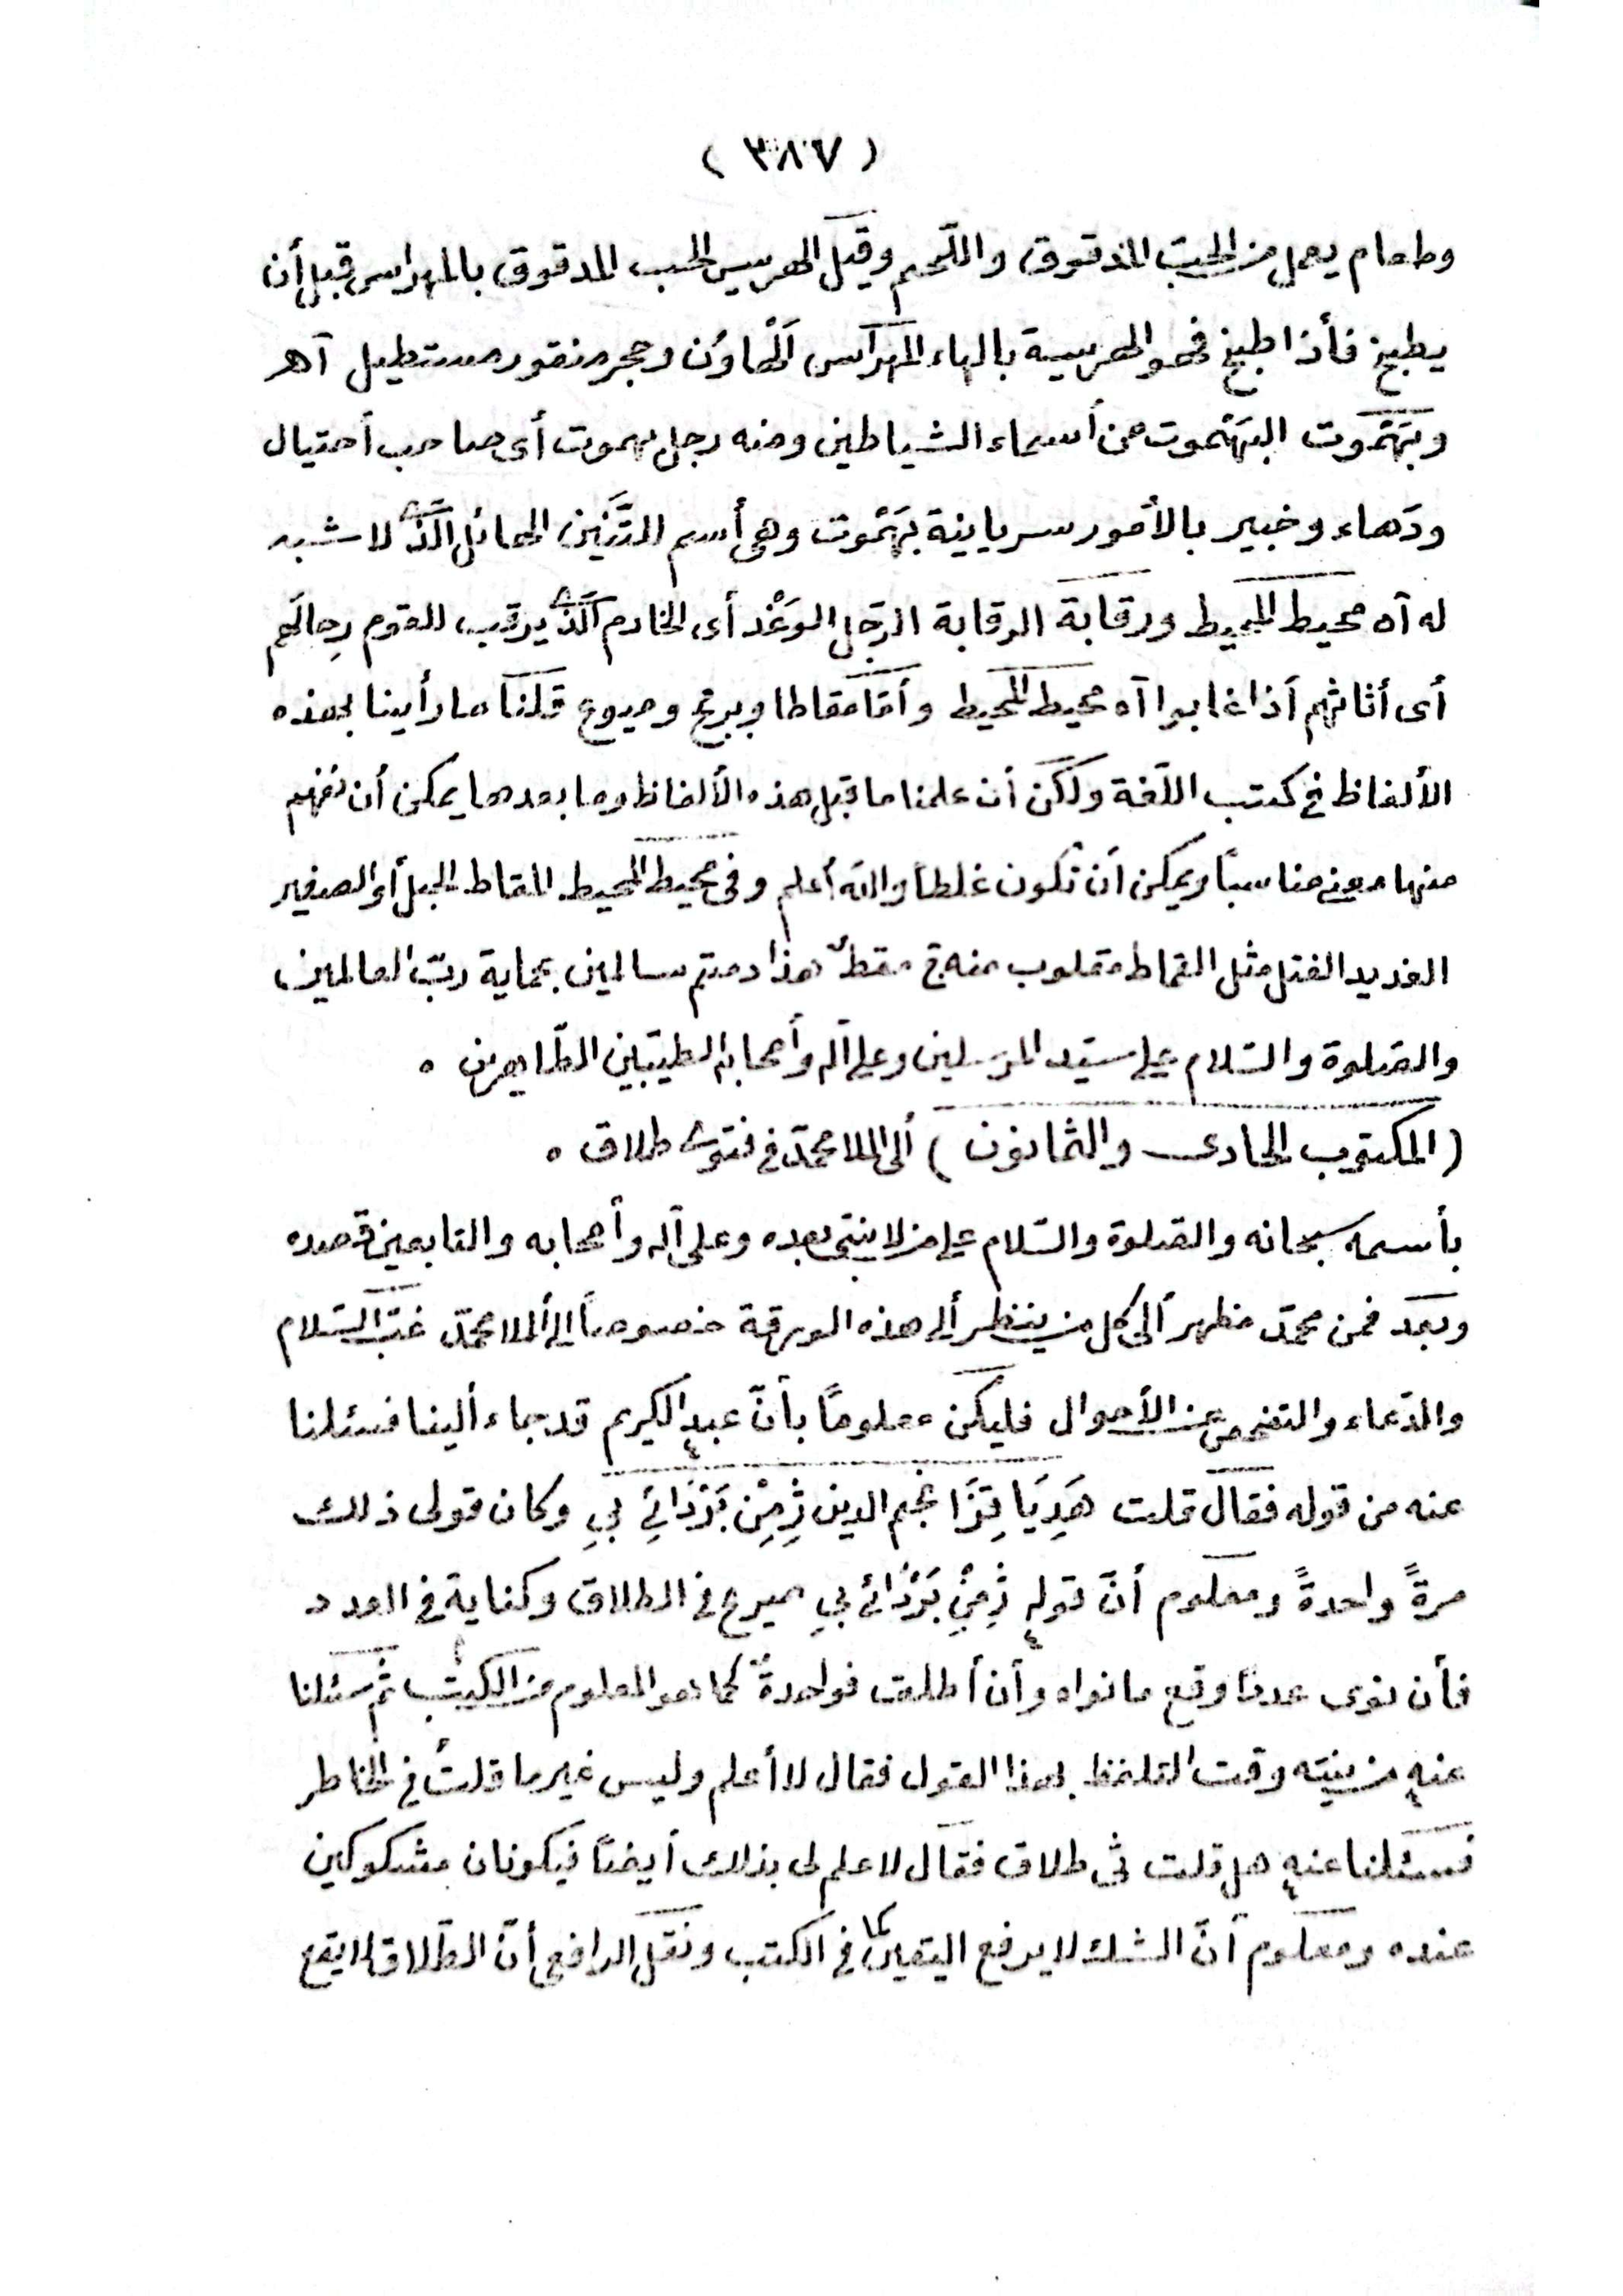 ( ٣٨٧ )
وطعام يعمل من الحبّ المدقوق واللّحم وقيل الهريس الحب المدقوق بالمهراس قبل أن
يطبخ فأذا طبخ فهو الهريسة بالهاء المهراس الْهاوُن وحجر منقور مستطيل آهـ
وبَهَمُوت البَهَمُوت من أسماء الشياطين ومنه رجل بهموت أى صاحب أحتيال
ودَهاء وخبير بالأمور سريانية بَهَمُوت وهى أسم للتَّنّين الهائل الَّذى لا شبه
له آه محيط المحيط ورقابة الرقابة الرّجل الوَغْد أى الخادم الَّذى يرقب للقوم رِحالَهم
أى أثاثهم أذا غابوا آه محيط المحيط وأمّا مقاطا وبرع وميوع قلنا ما رأينا بهذه
الألفاظ فى كتب اللّغة ولكن أن علمنا ما قبل هذه الألفاظ وما بعدها يمكن أن نفهم
منها معنى مناسبًا ويمكن أن تكون غلطاً والله أعلم وفى محيط المحيط المقاط الحبل أو الصغير
الشديد الفتل مثل القماط مقلوب منه ج مقطٌ هذا دمتم سالمين بحماية ربّ العالمين
والصّلوة والسّلام على سيّد المرسلين وعلى آله وأصحابه الطيّبين الطّاهرين ٠
(المكتوب الحادى والثمانون) ألى الملا محمّد فى فتوى طلاق ٠
بأسمه سبحانه والصّلوة والسّلام على من لا نبىّ بعده وعلى آله وأصحابه والتابعين قصده
وبعد فمن محمّد مظهر ألى كل من ينظر ألى هذه الورقة خصوصاً الى ألملا محمّد غبّ السّلام
والدّعاء والتفحص عن الأحوال فليكن معلومًا بأنّ عبد الكريم قد جاء ألينا فسئلنا
عنه من قوله فقال قلت هَدِيَا قِزَا نجم الدين ژِمِنْ بَرْدَائِى بِى وكان قولى ذلك
مرةً واحدةً ومعلوم أنّ قوله ژِمِنْ بَرْدَائِى بِى صريح فى الطلاق وكناية فى العدد
فأن نوى عددًا وقع ما نواه وأن أطلق فواحدةٌ كما هو المعلوم من الكتب ثم سئلنا
عنه من نيته وقت التلفظ بهذا القول فقال لا أعلم وليس غير ما قلتُ فى الخاطر
فسئلنا عنه هل قلت ثى طلاق فقال لا علم لى بذلك أيضًا فيكونان مشكوكين
عنده ومعلوم أنّ الشك لا يرفع اليقين كما فى الكتب ونقل الرافعى أنّ الطّلاق لا يقع